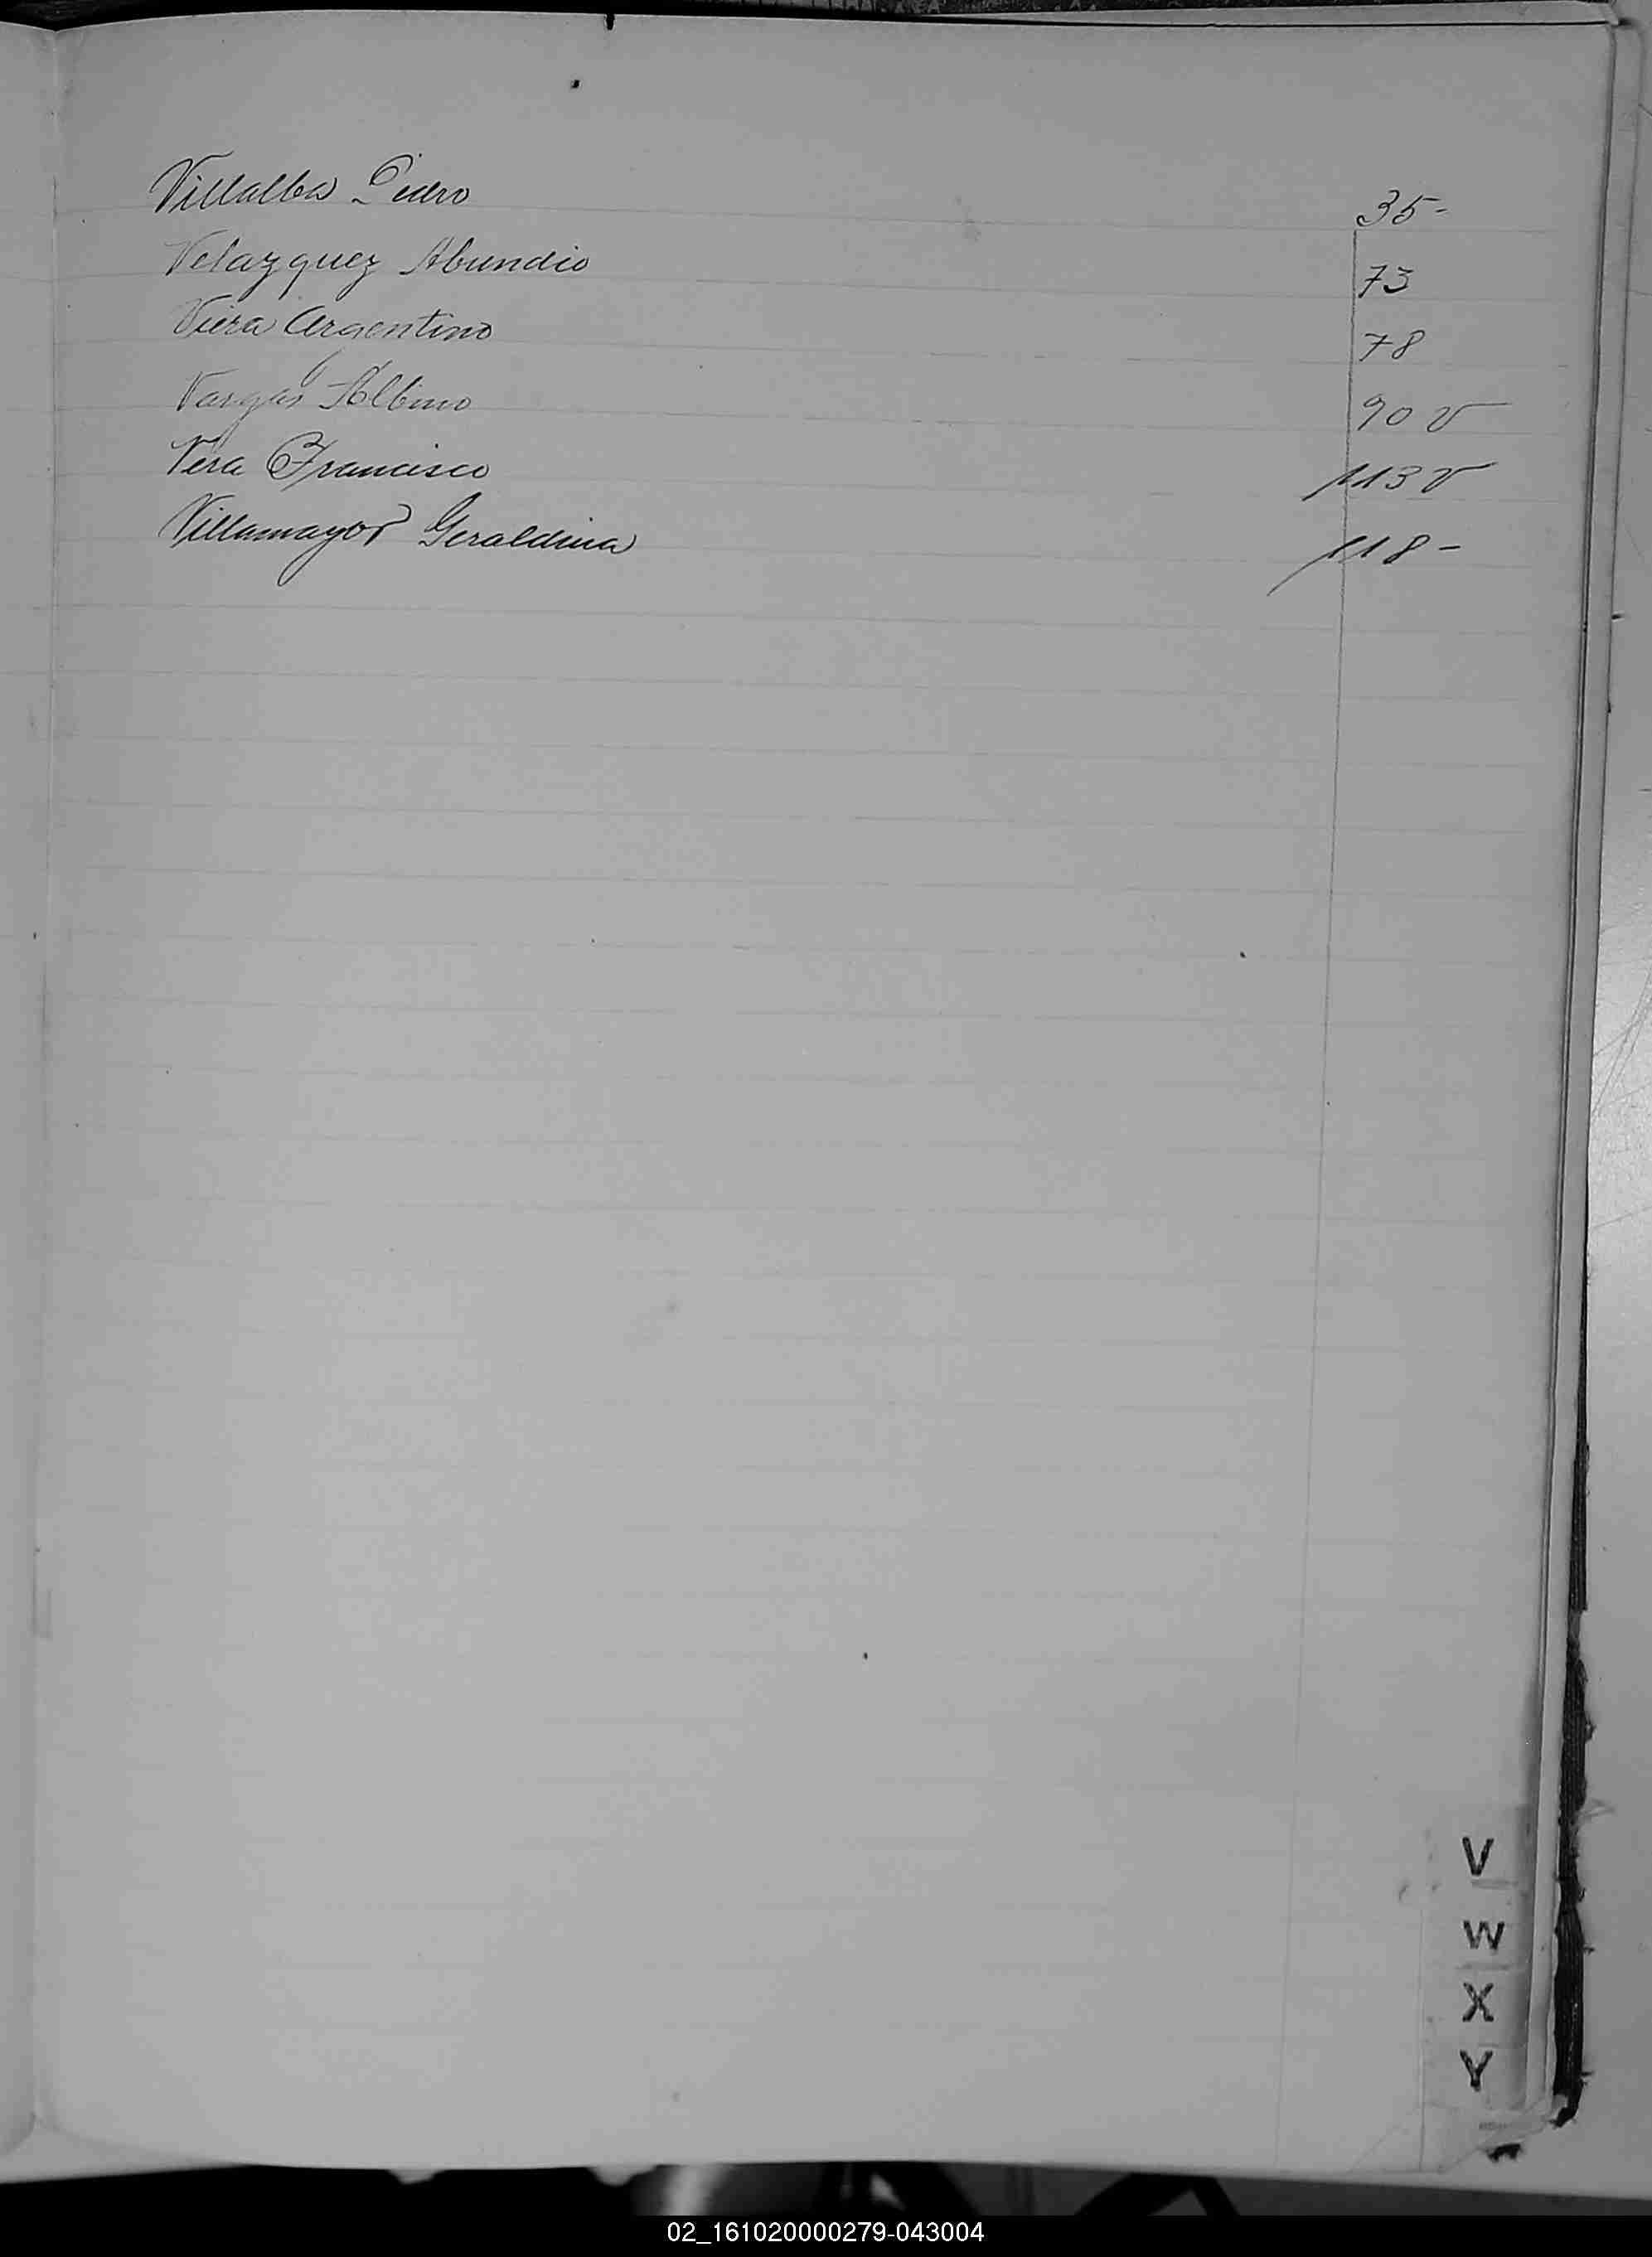 Villalba Pedro 35-
Velazquez Abundio 73
Viera Argentino 78
Vargas Albino 90 v
Vera Francisco 113 v
Villamayor Geraldina 118-
V
W
X
Y
02_161020000279-043004